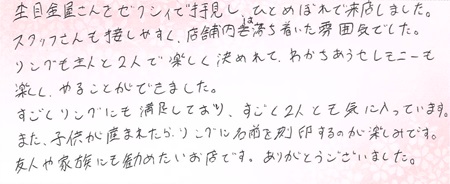 杢目金屋さんをゼクシィで拝見し、ひとめぼれで来店しました。
スタッフさんも接しやすく、店舗内は落ち着いた雰囲気でした。
リングも主人と2人で楽しく決めれて、わかちあうセレモニーも
楽しくやることができました。
すごくリングにも満足しており、すごく2人とも気に入っています。
また、子供が産まれたら、リングに名前を刻印するのが楽しみです。
友人や家族にも勧めたいお店です。ありがとうございました。